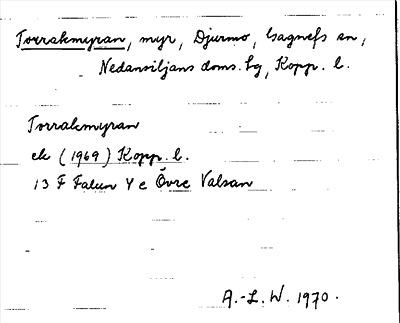 Torrakmyran, myr, Djurmo, Gagnefs sn,
Nedansiljans doms. hg, Kopp. l.
Torrakmyran
ek (1969) Kopp. l.
13 F Falun 4 e Övre Valsan
A.-L. W. 1970.